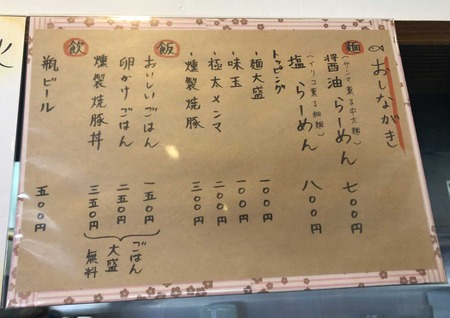 おしながき
麺
醤油らーめん 七〇〇円
(サンマ薫る中太麺)
塩らーめん 八〇〇円
(イリコ薫る細麺)
トッピング
・麺大盛 一〇〇円
・味玉 一〇〇円
・極太メンマ 二〇〇円
・燻製焼豚 三〇〇円
飯
おいしいごはん 一五〇円
卵かけごはん 二五〇円
燻製焼豚丼 三五〇円
ごはん
大盛
無料
飲
瓶ビール 五〇〇円
火